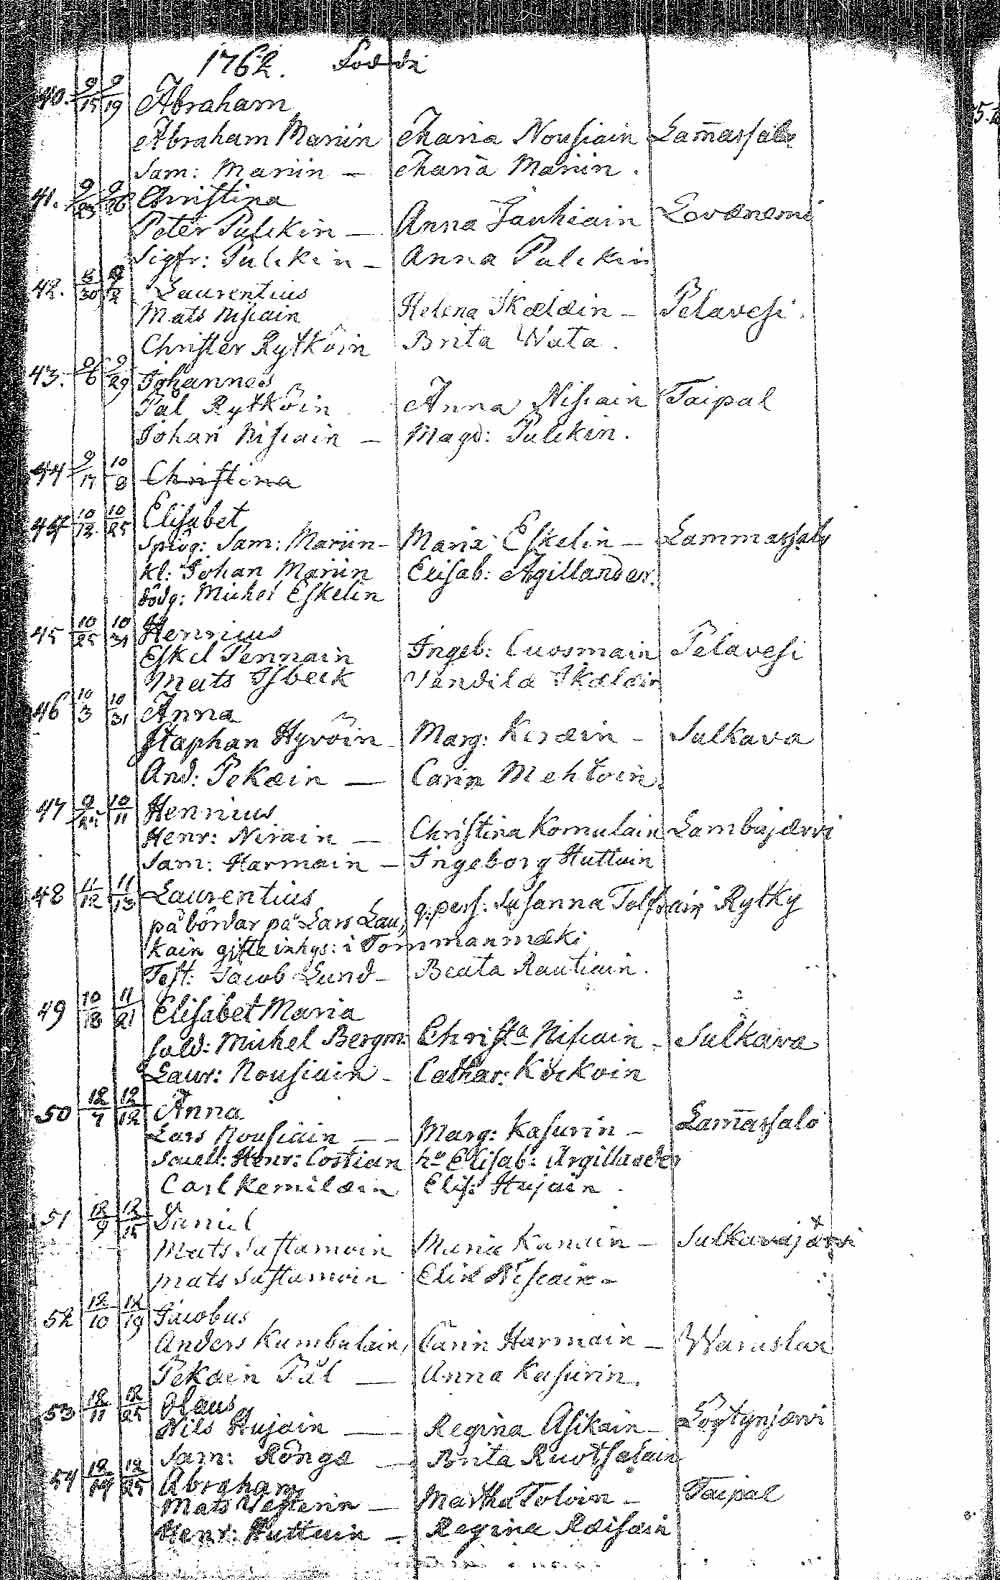 1762. Födde
40. 9/15 9/19 Abraham
Abraham Mariin Tharia Nousiain Lam̄assalo
Sam: Mariin — Tharia Mariin.
41. 9/25 9/26 Christina
Peter Pulckin — Anna Jauhiain Levænemi
Sigfr: Pulckin — Anna Pulckin
42. Laurentius
Mats Nisiain Helena Skælæin — Pelavesi.
Christer Rytköin Brita Wata.
43. 9/6 9/29 Johannes
Pål Rytköin Anna Nisiain Taipal
Johan Nisiain — Magd: Pulckin.
44 9/17 10/8 Christina
44 10/12 10/25 Elisabet
Spiög: Sam: Mariin — Maria Eskelin — Lammassalo
Kl: Johan Mariin Elisab: Agillander.
Michel Eskelin
45 10/25 10/31 Henricus
Eskel Pennain Ingeb: Cuosmain Pelavesi
Mats Isbeck Vendila Skælæin
46 10/3 10/31 Anna
Staphan Hyvöin — Marg: — Sulkava
And: Pekæin — Carin Mehtoin.
47 10/11 Henricus
Henr: Nirain — Christina Komulain Lambujærvi
Sam: Harmain — Ingeborg Huttuin
48 11/12 11/13 Laurentius
på bördar på Lars Lau, q:pers: Susanna Rytky
kain gifte inhys: i Tommanmæki
Test: Jacob Lund — Beata Rautiain.
49 10/18 11/21 Elisabet Maria
sold: Michel Bergm: Christa Nisiain — Sulkava
Laur: Nousiain — Cathar: Kockoin
50 12/7 12/12 Anna
Lars Nousiain — — Marg: Kasurin — Lam̄assalo
Henr: Costian hr Elisab: Argillander
Carl Kemilæin Elis: Hujain.
51 12/9 12/15 Daniel
Mats Sastamoin Maria Kanain — Sulkavajærvi
Mats Sastamoin Elin Nisiain —
52 12/10 12/19 Jacobus
Anders Kumbulain, Carin Harmain — Waruslax
Pekæin Pål — Anna Kasurin.
53 12/11 12/25 Olaus
Nils Hujain — Regina Asikain — Löytynjærvi
Sam: Röngæ — Brita Ruotsalain
54 12/24 12/25 Abraham
Mats Vesterin — Martha Toloin — Taipal
Henr: Huttuin — Regina Ræisæin